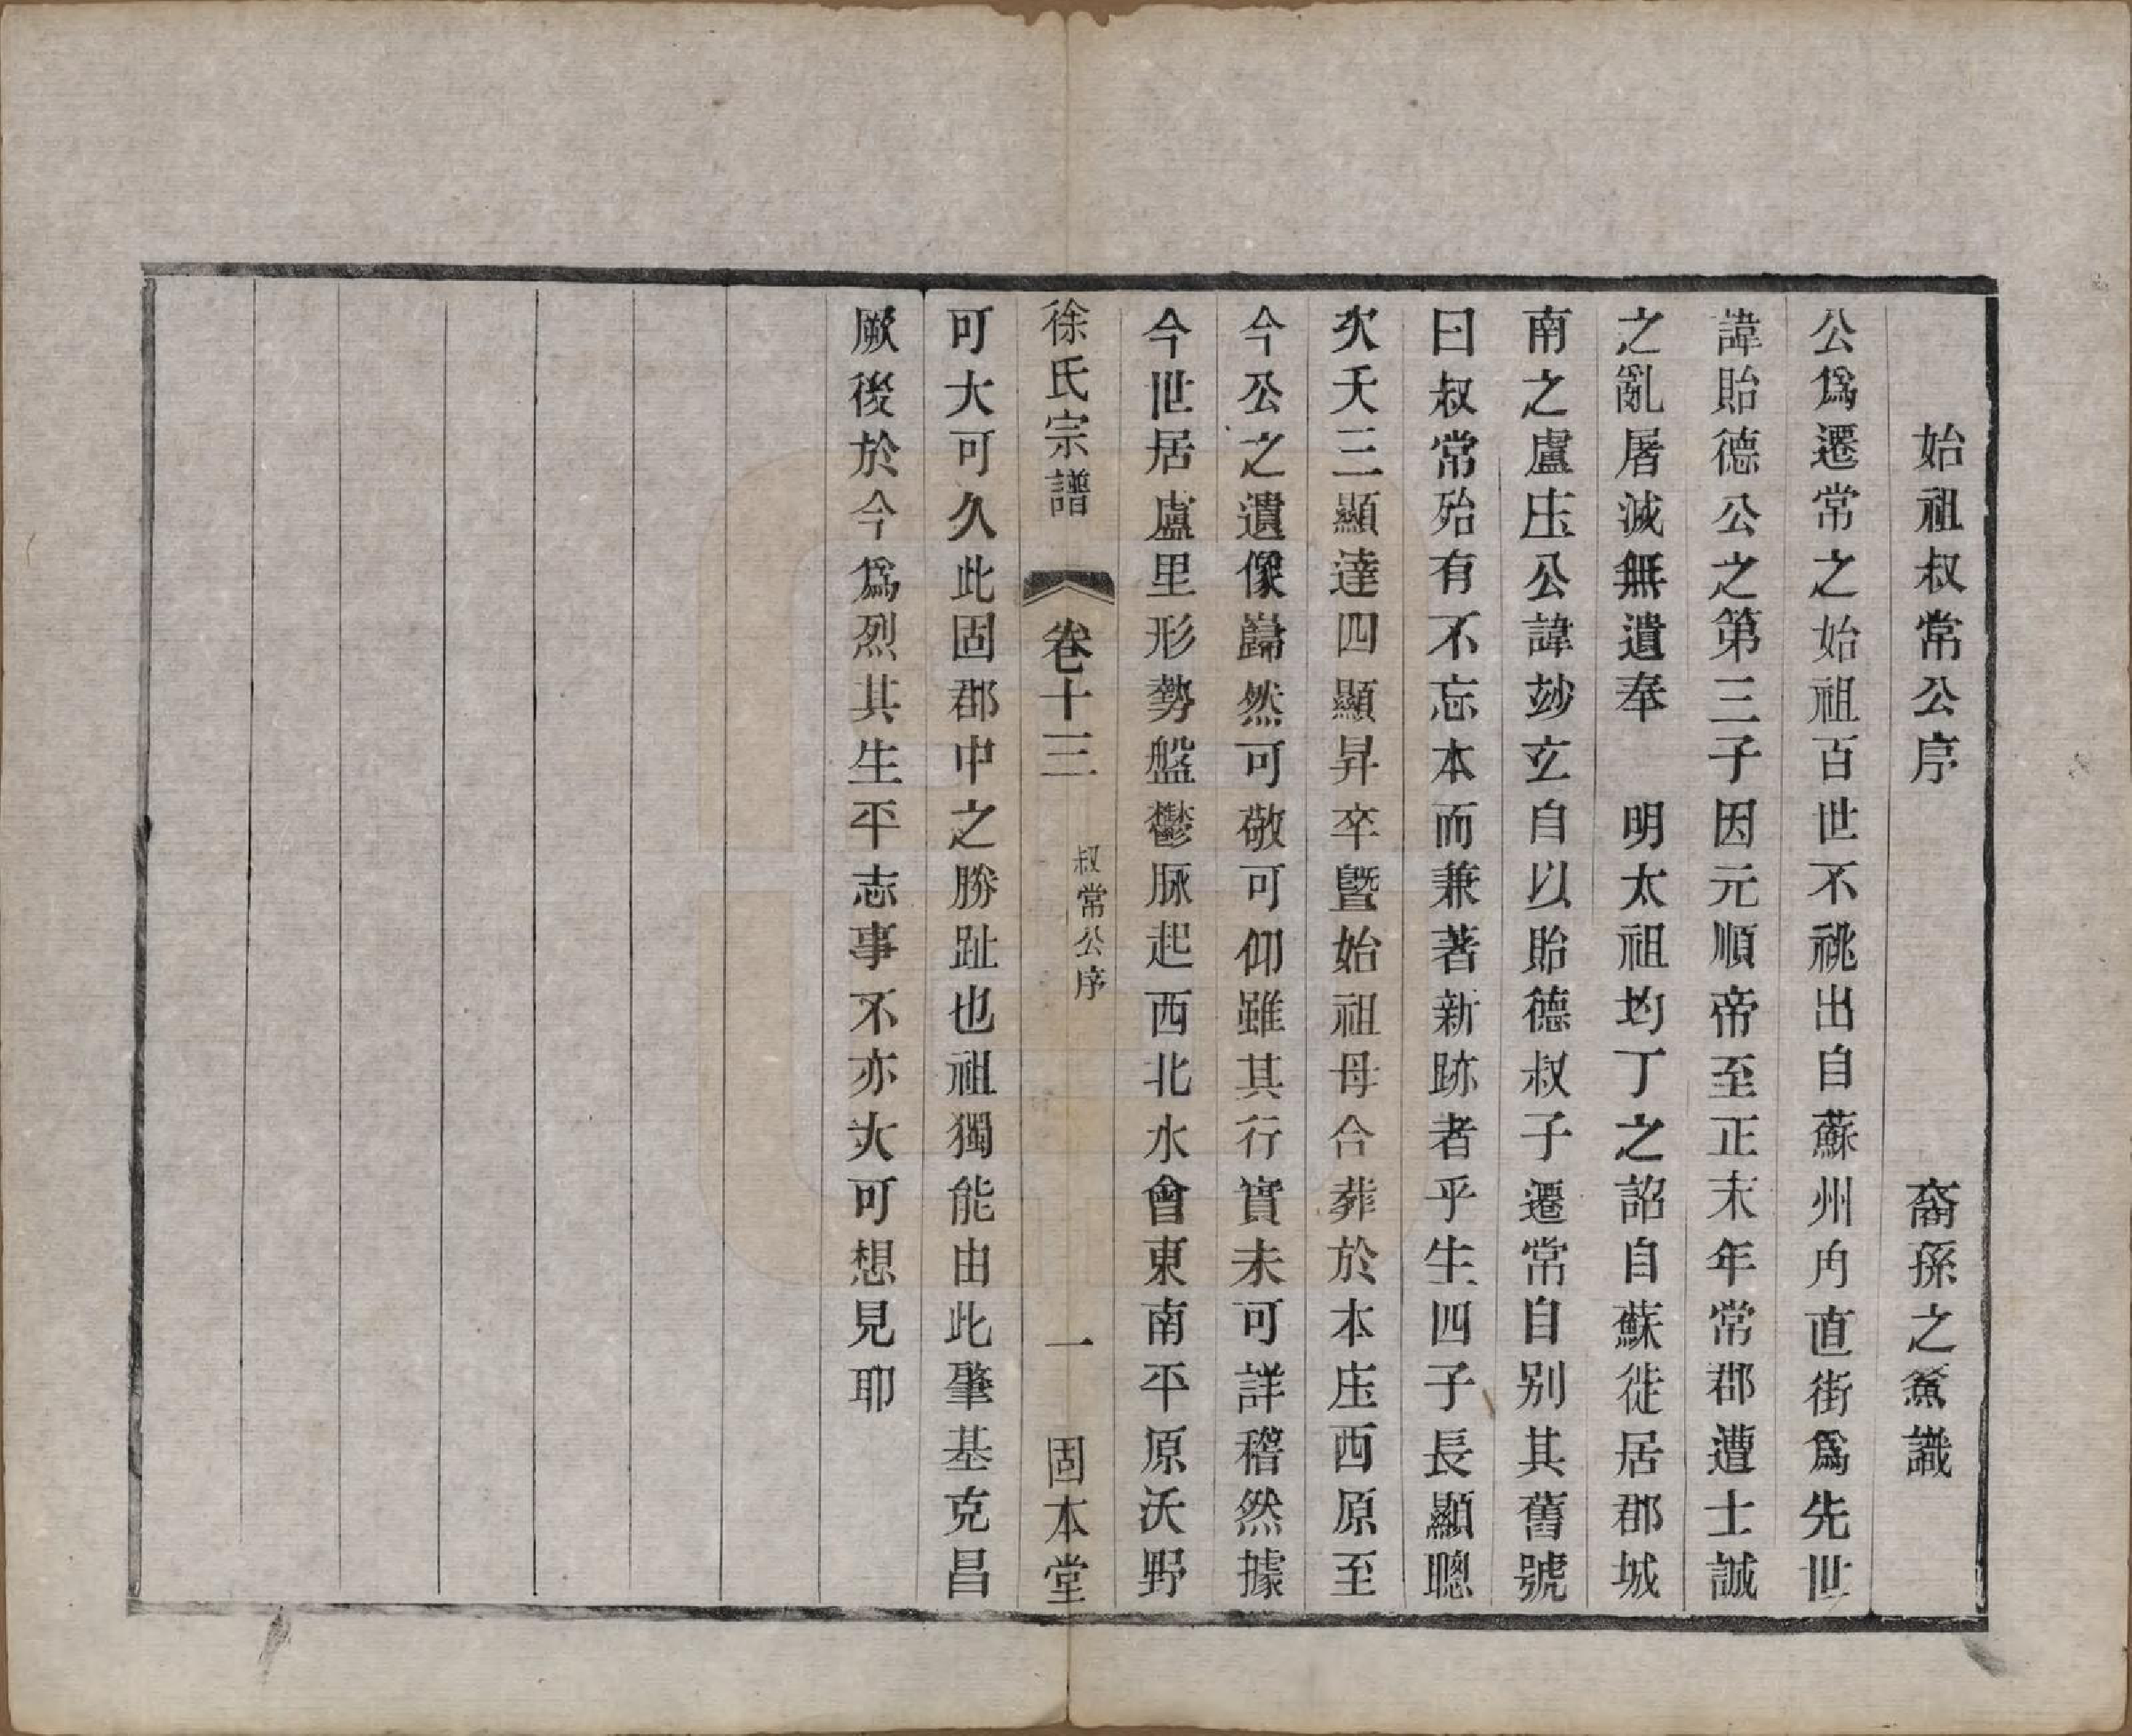 始祖叔常公序　裔孫之鯗識
公爲遷常之始祖百世不祧出自蘇州甪直街爲先世
諱貽德公之第三子因元順帝至正末年常郡遭士誠
之亂屠滅無遺奉　明太祖均丁之詔自蘇徙居郡城
南之盧庄公諱玅玄自以貽德叔子遷常自别其舊號
曰叔常殆有不忘本而兼著新跡者乎生四子長顯聰
次夭三顯達四顯昇卒暨始祖母合葬於本庄西原至
今公之遺像巋然可敬可仰雖其行實未可詳稽然據
今世居盧里形勢盤鬱脉起西北水會東南平原沃野
徐氏宗譜　卷十三　叔常公序　一　固本堂
可大可久此固郡中之勝趾也祖獨能由此肇基克昌
厥後於今爲烈其生平志事不亦大可想見耶